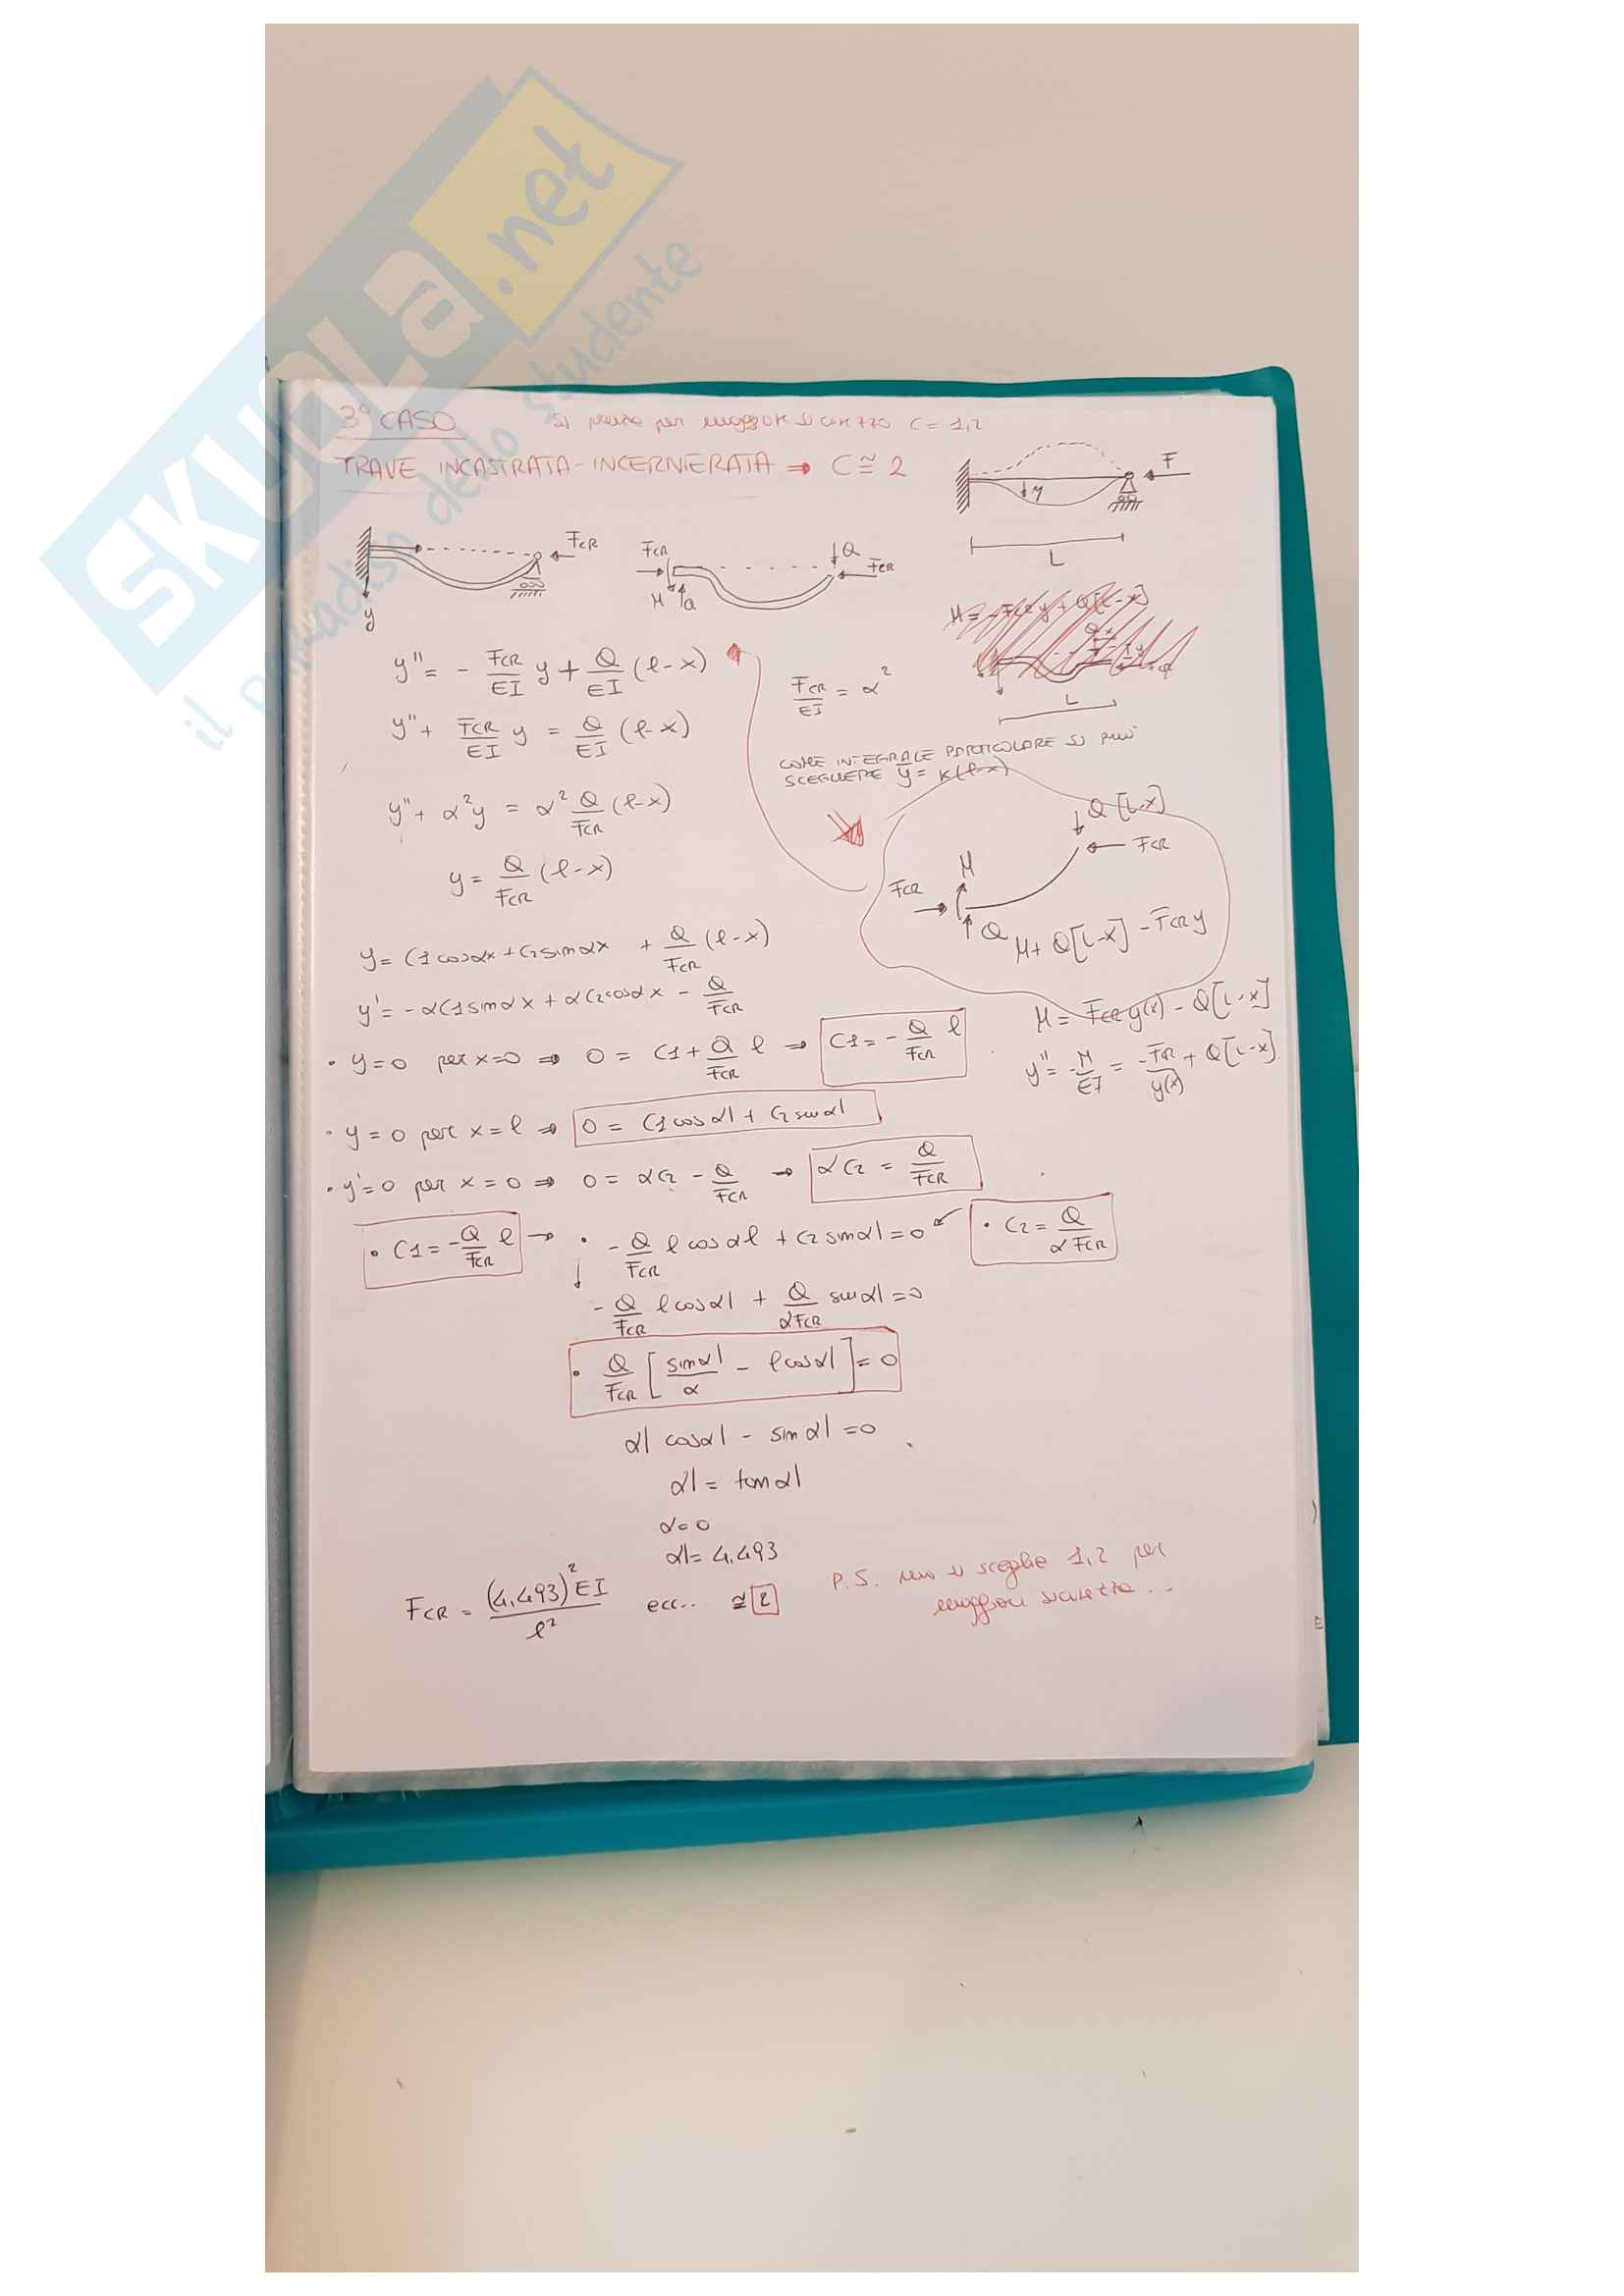 SKUOLA.net
il paradiso dello studente
3° CASO
Si per maggiore sicurezza C = 1,2
TRAVE INCASTRATA-INCERNIERATA ⇒ C ≅ 2
F
y
L
FCR
y
FCR
M
Q
Q
FCR
M = -FCR y + Q[L-x]
L
y'' = - FCR/EI y + Q/EI (l-x)
FCR/EI = α²
y'' + FCR/EI y = Q/EI (l-x)
COME INTEGRALE PARTICOLARE SI PUÒ
SCEGLIERE ȳ = K(l-x)
y'' + α²y = α² Q/FCR (l-x)
y = Q/FCR (l-x)
Q [L-x]
FCR
M
FCR
Q
M + Q[L-x] - FCR y
y = C1 cosαx + C2 sinαx + Q/FCR (l-x)
y' = -αC1 sinαx + αC2 cosαx - Q/FCR
M = FCR y(x) - Q[L-x]
y'' = -M/EI = -FCR/y(x) + Q[L-x]
• y=0 per x=0 ⇒ 0 = C1 + Q/FCR l → C1 = -Q/FCR l
• y=0 per x=l ⇒ 0 = C1 cosαl + C2 sinαl
• y'=0 per x=0 ⇒ 0 = αC2 - Q/FCR → αC2 = Q/FCR
• C1 = -Q/FCR l → • -Q/FCR l cosαl + C2 sinαl = 0 • C2 = Q/αFCR
-Q/FCR l cosαl + Q/αFCR sinαl = 0
• Q/FCR [sinαl/α - l cosαl] = 0
αl cosαl - sinαl = 0
αl = tanαl
α=0
αl = 4,493
FCR = (4,493)² EI/l² ecc.. ≅ 2
P.S. si sceglie 1,2 per
maggiore sicurezza...